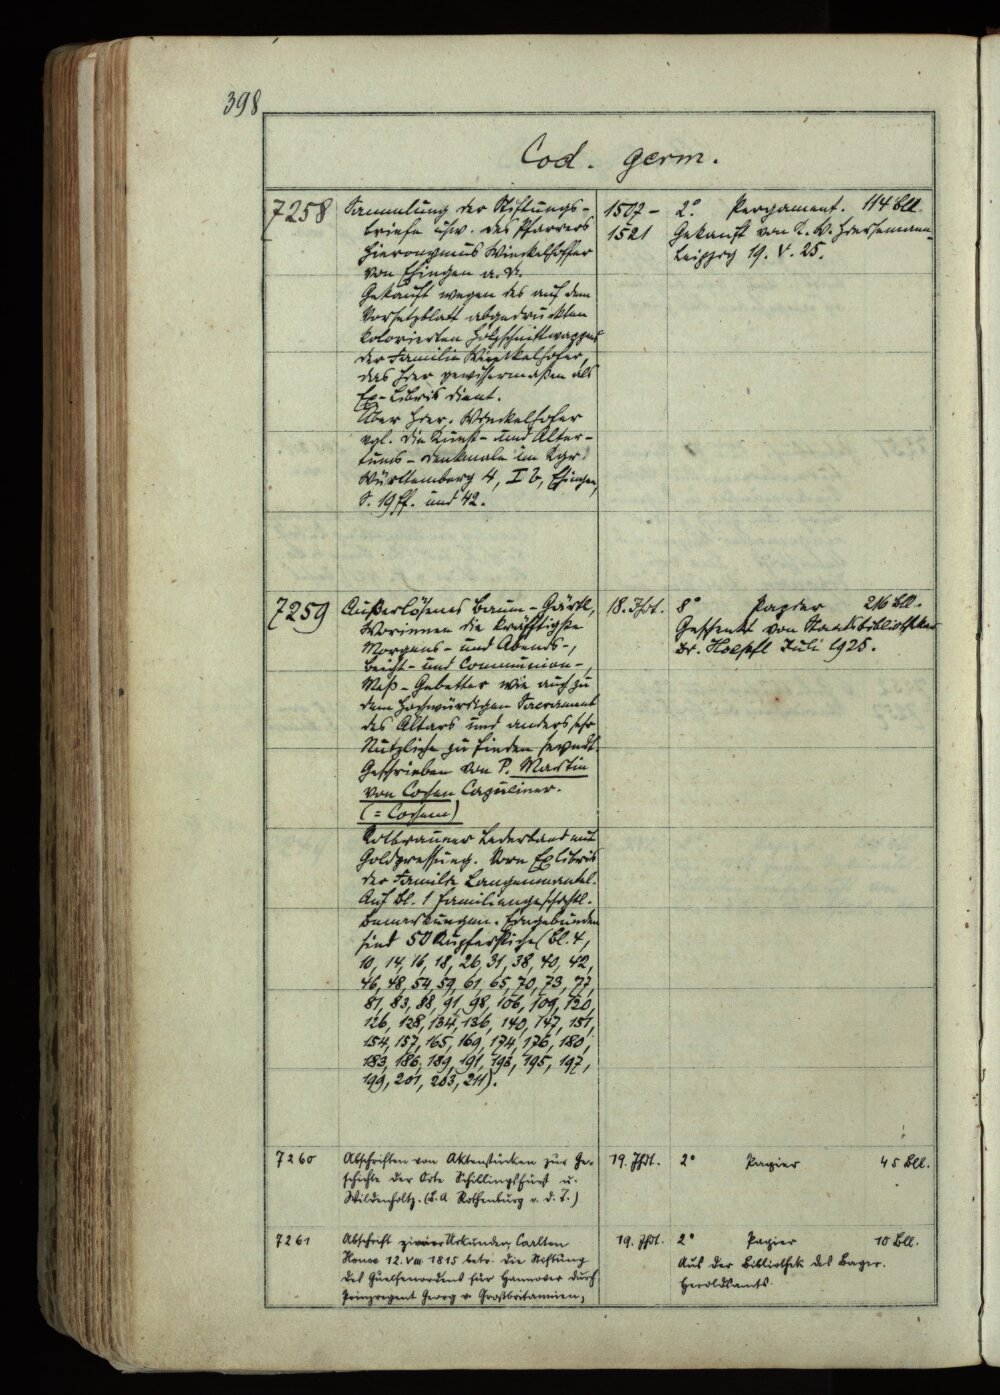 398
Cod. germ.
7258 Sammlung der Stiftungs- 1507- 2°. Pergament. 114 Bll.
briefe usw. des Pfarrers 1521 Gekauft von K. W. Hiersemann-
Hieronymus Winckelhoffer Leipzig 19. V. 25.
von Ehingen a. D.
Gekauft wegen des auf dem
Vorsetzblatt abgedruckten
kolorierten Holzschnittwappens
der Familie Winckelhofer,
das hier gewissermaßen als
Ex-Libris dient.
Über Hier. Winckelhofer
vgl. die Kunst- und Alter-
tums-Denkmale im Kgr.
Württemberg 4, I b, Ehingen,
S. 19 ff. und 42.
7259 Außerlösenes Baum-Gärtl, 18. Jhdt. 8° Papier 216 Bll.
Worinnen die kräfftigste Geschenk von Staatsbibliothekar
Morgens- und Abends-, Dr. Hoepfl Juli 1925.
Beicht- und Communion-,
Meß-Gebetter wie auch zu
dem hochwürdigen Sacrament
des Altars und anders sehr
Nutzliche zu finden seyndt.
Geschrieben von P. Martin
von Cochen Capuciner.
(= Cochem)
Rotbrauner Lederband mit
Goldpressung. Vorn Exlibris
der Familie Langenmantel.
Auf Bl. 1 familiengeschichtl.
Bemerkungen. Eingebunden
sind 50 Kupferstiche (Bl. 4,
10, 14, 16, 18, 26, 31, 38, 40, 42,
46, 48, 54, 59, 61, 65, 70, 73, 77,
81, 83, 88, 91, 98, 106, 109, 120,
126, 128, 134, 136, 140, 147, 151,
154, 157, 165, 169, 174, 176, 180,
183, 186, 189, 191, 193, 195, 197,
199, 201, 203, 211).
7260 Abschriften von Aktenstücken zur Ge- 19. Jhdt. 2° Papier 45 Bll.
schichte der Orte Schillingsfürst u.
Wildenholtz. (B.A. Rothenburg o. d. T.)
7261 Abschrift einer Urkunde, Carlton 19. Jhdt. 2° Papier 10 Bll.
House 12. VIII 1815 betr. die Stiftung Aus der Bibliothek des Bayer.
des Guelfenordens für Hannover durch Heroldsamts.
Prinzregent Georg v. Großbritannien,